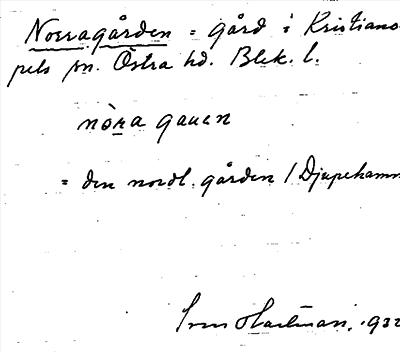 Norragården = gård i Kristiano-
pels sn. Östra hd. Blek. l.
nòṟa gauen
= den nordl. gården i Djupehamn
Sven Hartman. 1932